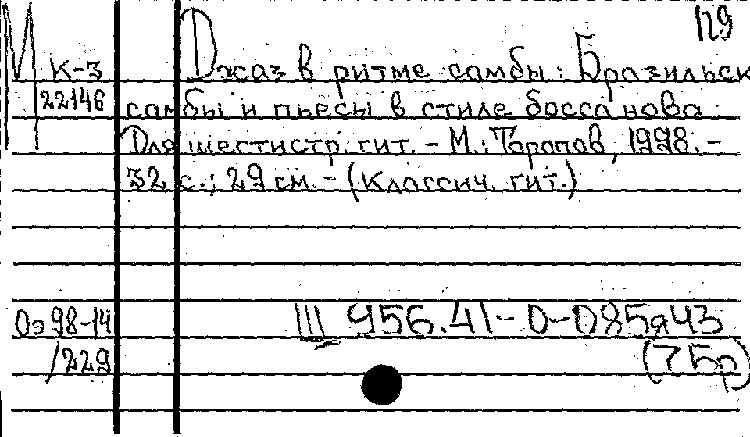 129
М
К-3
22146
Джаз в ритме самбы: Бразильск
самбы и пьесы в стиле босса нова
Для шестистр. гит. - М.: Торопов, 1998. -
32 с.; 29 см. - (Классич. гит.)
Оэ 98-14
/229
III 956.41-0-085я43
(75р)